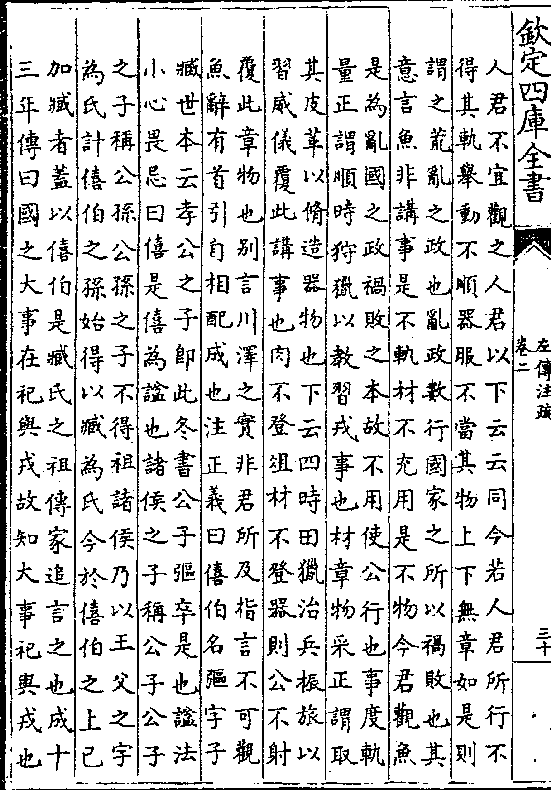 欽定四庫全書
左傳注疏
卷二
三十
人君不宜觀之人君以下云云同今若人君所行不
得其軌舉動不順器服不當其物上下無章如是則
謂之荒亂之政也亂政數行國家之所以禍敗也其
意言魚非講事是不軌材不充用是不物今君觀魚
是為亂國之政禍敗之本故不用使公行也事度軌
量正謂順時狩獵以教習戎事也材章物采正謂取
其皮革以脩造器物也下云四時田獵治兵振旅以
習威儀覆此講事也肉不登俎材不登器則公不射
覆此章物也别言川澤之實非君所及指言不可觀
魚辭有首引自相配成也注正義曰僖伯名彄字子
臧世本云孝公之子即此冬書公子彄卒是也謚法
小心畏忌曰僖是僖為謚也諸侯之子稱公子公子
之子稱公孫公孫之子不得祖諸侯乃以王父之字
為氏計僖伯之孫始得以臧為氏今於僖伯之上已
加臧者蓋以僖伯是臧氏之祖傳家追言之也成十
三年傳曰國之大事在祀與戎故知大事祀與戎也